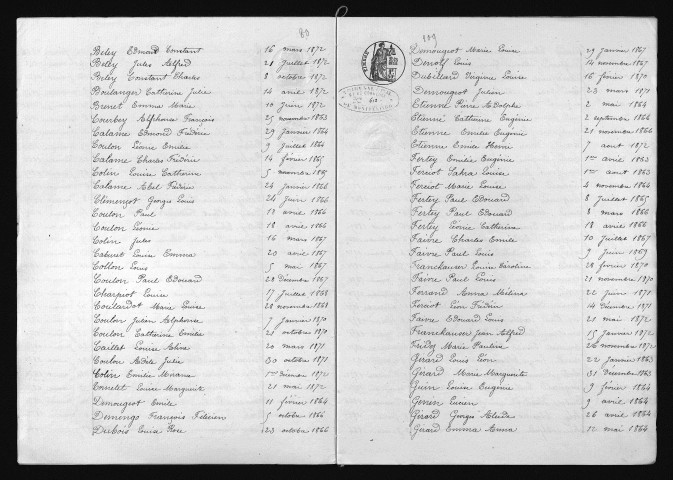 80
Beley Edmond Constant 16 mars 1872
Beley Jules Alfred 21 Juillet 1872
Beley Constant Charles 8 octobre 1872
Boulanger Catherine Julie 14 avril 1872
Benet Emma Marie 10 Juin 1872
Courboy Alphonse François 25 novembre 1863
Calame Edmond Frédéric 29 Janvier 1864
Coulon Léonie Emélie 9 Juillet 1864
Calame Charles Frédéric 14 février 1865
Colin Louise Catherine 5 novembre 1865
Calame Abel Frédéric 24 Janvier 1866
Clémençot Georges Louis 24 Juin 1866
Coulon Paul 18 avril 1866
Coulon Léonie 18 avril 1866
Colin Jules 16 mars 1867
Cabuet Louise Emma 20 avril 1867
Collon Louis 5 mai 1867
Coulon Paul Edouard 28 Décembre 1867
Charpiot Louise 17 Juillet 1868
Coulardot Marie Louise 28 novembre 1868
Coulon Julien Alphonse 7 Janvier 1870
Coulon Catherine Emélie 21 octobre 1870
Caillet Louise 20 mars 1871
Coulon Adèle Julie 30 octobre 1871
Colin Emélie 1er Décembre 1872
Louise Marguerite 21 mai 1872
Demougeot Emile 11 février 1864
Demenge François Félicien 5 octobre 1866
Dubois Louise Rose 23 octobre 1866
109
Demougeot Marie Louise 29 Janvier 1867
Louis 14 novembre 1867
Dubillard Virginie Louise 16 février 1870
Demougeot Julien 23 mars 1871
Etienne Pierre Adolphe 2 mai 1864
Etienne Catherine Eugénie 2 septembre 1864
Etienne Emélie Eugénie 21 novembre 1866
Etienne Emile Henri 7 aout 1872
Fertey Emélie Eugénie 1er avril 1863
Ferciot Louise 1er aout 1863
Ferciot Marie Louise 4 novembre 1864
Fertey Paul Edouard 8 Juillet 1865
Fertey Paul Edouard 8 mars 1866
Fertey Léonie Catherine 18 avril 1866
Faivre Charles Emile 10 Juillet 1867
Faivre Paul Louis 9 Juin 1869
Franckauser Louise Caroline 28 février 1870
Faivre Paul Louis 21 novembre 1870
Ferrand Anna Mélina 22 Juin 1871
Ferciot Léon Frédéric 14 Décembre 1871
Faivre Edouard Louis 21 mai 1872
Franckauser Jean Alfred 15 Janvier 1872
Marie Pauline 26 novembre 1872
Gérard Louis Léon 22 Janvier 1863
Gérard Marie Marguerite 31 Décembre 1863
Louise Eugénie 9 février 1864
Lucien 9 avril 1864
Gérard Georges 26 avril 1864
Gérard Emma Anna 12 mai 1864